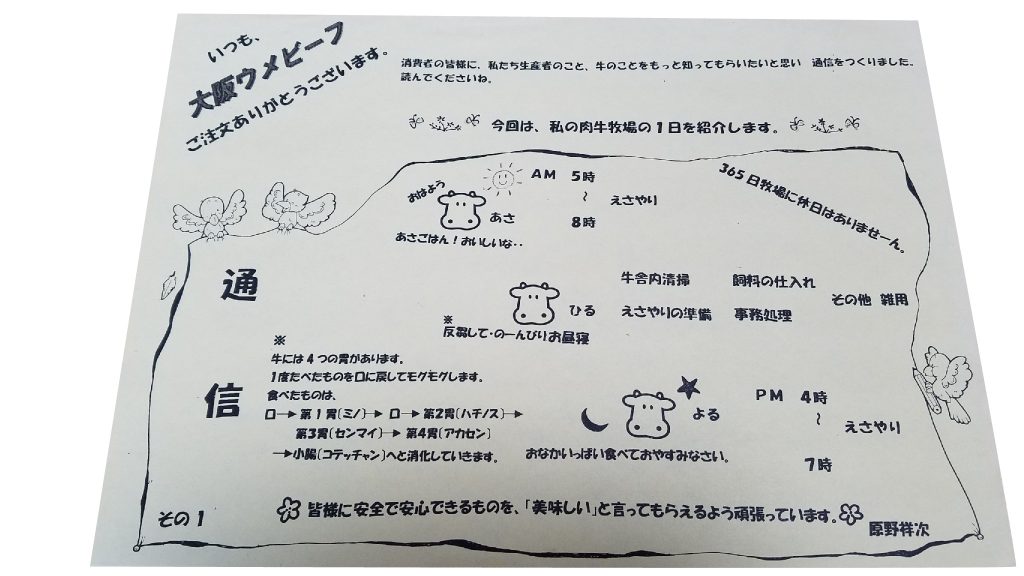 いつも、
大阪ウメビーフ
ご注文ありがとうございます。
消費者の皆様に、私たち生産者のこと、牛のことをもっと知ってもらいたいと思い 通信をつくりました。
読んでくださいね。
今回は、私の肉牛牧場の1日を紹介します。
365日牧場に休日はありませーん。
おはよう
あさ
あさごはん！おいしいな・・
AM 5時
～
8時
えさやり
通信
ひる
※
反芻して・のーんびりお昼寝
牛舎内清掃 飼料の仕入れ
えさやりの準備 事務処理
その他 雑用
※
牛には4つの胃があります。
1度たべたものを口に戻してモグモグします。
食べたものは、
口→第1胃(ミノ)→ 口→第2胃(ハチノス)→
第3胃(センマイ)→第4胃(アカセン)
→小腸(コテッチャン)へと消化していきます。
よる
おなかいっぱい食べておやすみなさい。
PM 4時
～
7時
えさやり
その1
皆様に安全で安心できるものを、「美味しい」と言ってもらえるよう頑張っています。
原野祥次